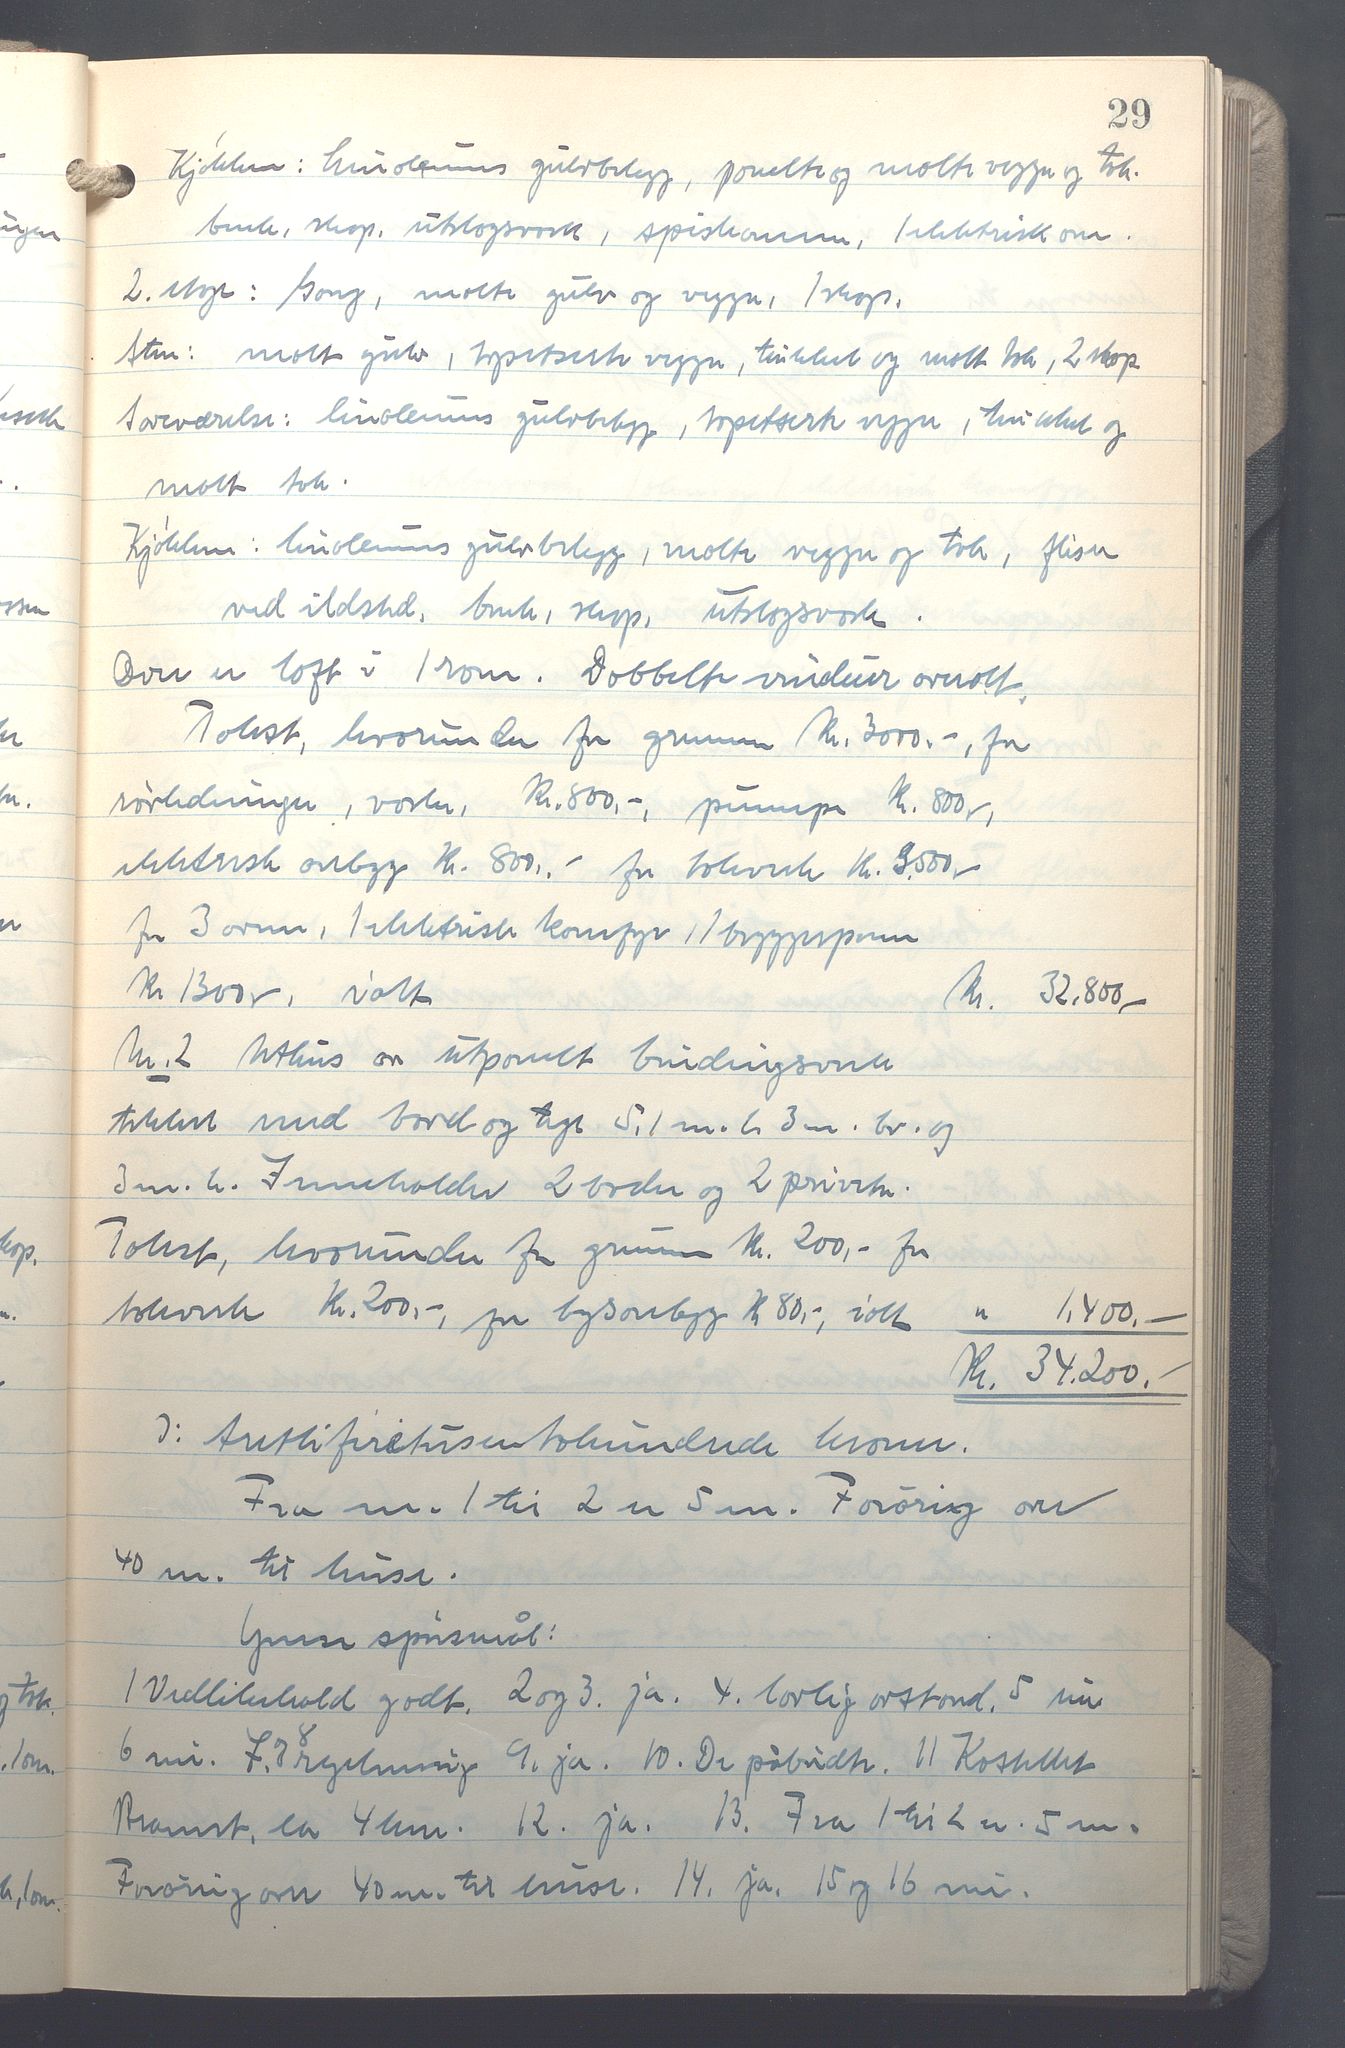 29
Kjökken: linoleums gulvbelegg, panelte og malte vegger og tak.
benk, skap, utslagsvask, spiskammer, 1 elektrisk ovn.
2. etage: Gang, malte gulv og vegger, 1 skap.
Stue: malt gulv, tapetserte vegger, trukket og malt tak, 2 skap
Soveværelse: linoleums gulvbelegg, tapetserte vegger, trukket og
malt tak.
Kjökken: linoleums gulvbelegg, malte vegger og tak, fliser
ved ildsted, benk, skap, utslagsvask.
Over er loft i 1 rom. Dobbelte vinduer overalt.
Takst, hvorunder for grunnm Kr. 3000.-, for
rörledninger, vasker, Kr. 800,-, pumpe Kr. 800,-,
elektrisk anlegg Kr. 800,.- for takverk Kr. 3.500,-
for 3 ovner, 1 elektrisk komfyr, 1 bryggepanne
Kr 1300,-, ialt Kr. 32.800,-
Nr. 2 Uthus av utpanelt bindingsverk
tekket med bord og tegl 5,1 m. l. 3 m. br. og
3 m. h. Inneholder 2 boder og 2 priveter.
Takst, hvorunder for grunnm Kr. 200,- for
takverk Kr. 200,-, for lysanlegg Kr 80,-, ialt " 1.400.-
Kr. 34.200.-
ɔ: trettifiretusentohundrede kroner.
Fra nr. 1 til 2 er 5 m. Foröving over
40 m. til huse.
Gense spörsmål:
1 Vedlikehold godt. 2 og 3. ja. 4. lovlig avstand. 5 nei
6 nei. 7. 8 regelmessig 9. ja. 10. De påbudte. 11 Kostellet
Bramst. ca 4 km. 12. ja. 13. Fra 1 til 2 er 5 m.
over 40 m. til huse. 14. ja. 15 og 16 nei.